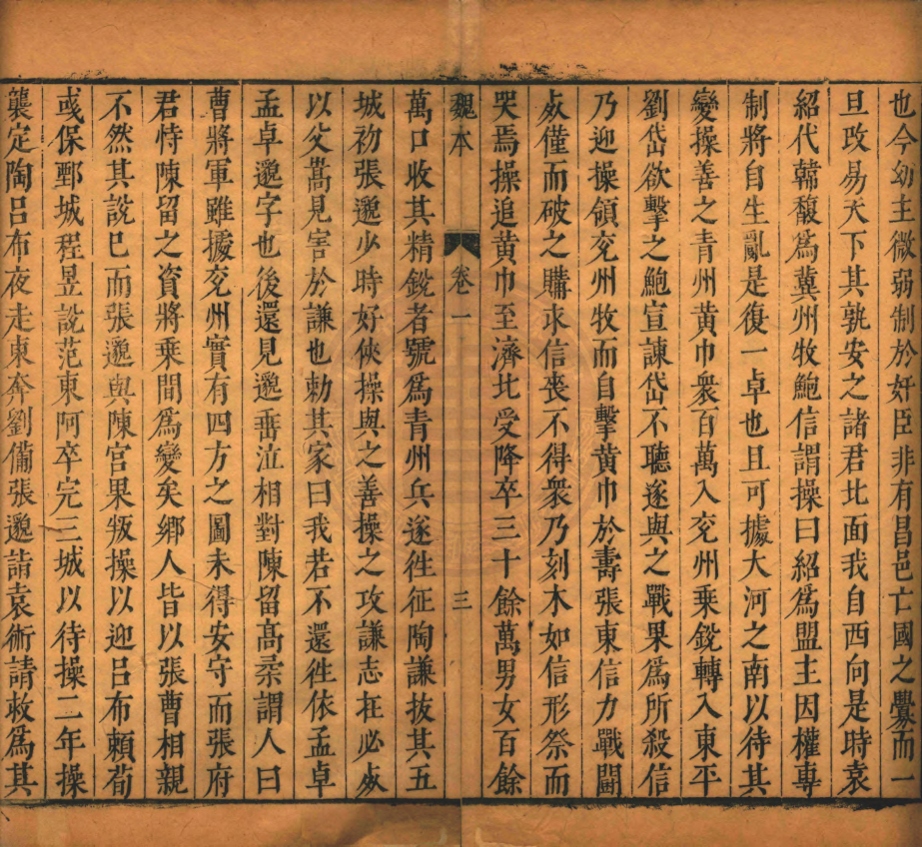 也今幼主微弱制於奸臣非有昌邑亡國之釁而一
旦攺易天下其孰安之諸君北面我自西向是時袁
紹代韓馥爲冀州牧鮑信謂操曰紹爲盟主因權專
制將自生亂是復一卓也且可據大河之南以待其
變操善之青州黄巾衆百萬入兖州乗銳轉入東平
劉岱欲擊之鮑宣諫岱不聽遂與之戰果爲所殺信
乃迎操領兖州牧而自擊黄巾於壽張東信力戰鬭
死僅而破之購求信喪不得衆乃刻木如信形祭而
哭焉操追黄巾至濟北受降卒三十餘萬男女百餘
魏本 卷一 三
萬口收其精銳者號爲青州兵遂徃征陶謙拔其五
城初張邈少時好俠操與之善操之攻謙志在必死
以父嵩見害於謙也勅其家曰我若不還徃依孟卓
孟卓邈字也後還見邈垂泣相對陳留髙柔謂人曰
曹將軍雖據兖州實有四方之圖未得安守而張府
君恃陳留之資將乗間爲變矣鄉人皆以張曹相親
不然其說巳而張邈與陳宫果叛操以迎吕布頼荀
彧保鄄城程昱說范東阿卒完三城以待操二年操
襲定陶吕布夜走東奔劉備張邈詣袁術請救爲其